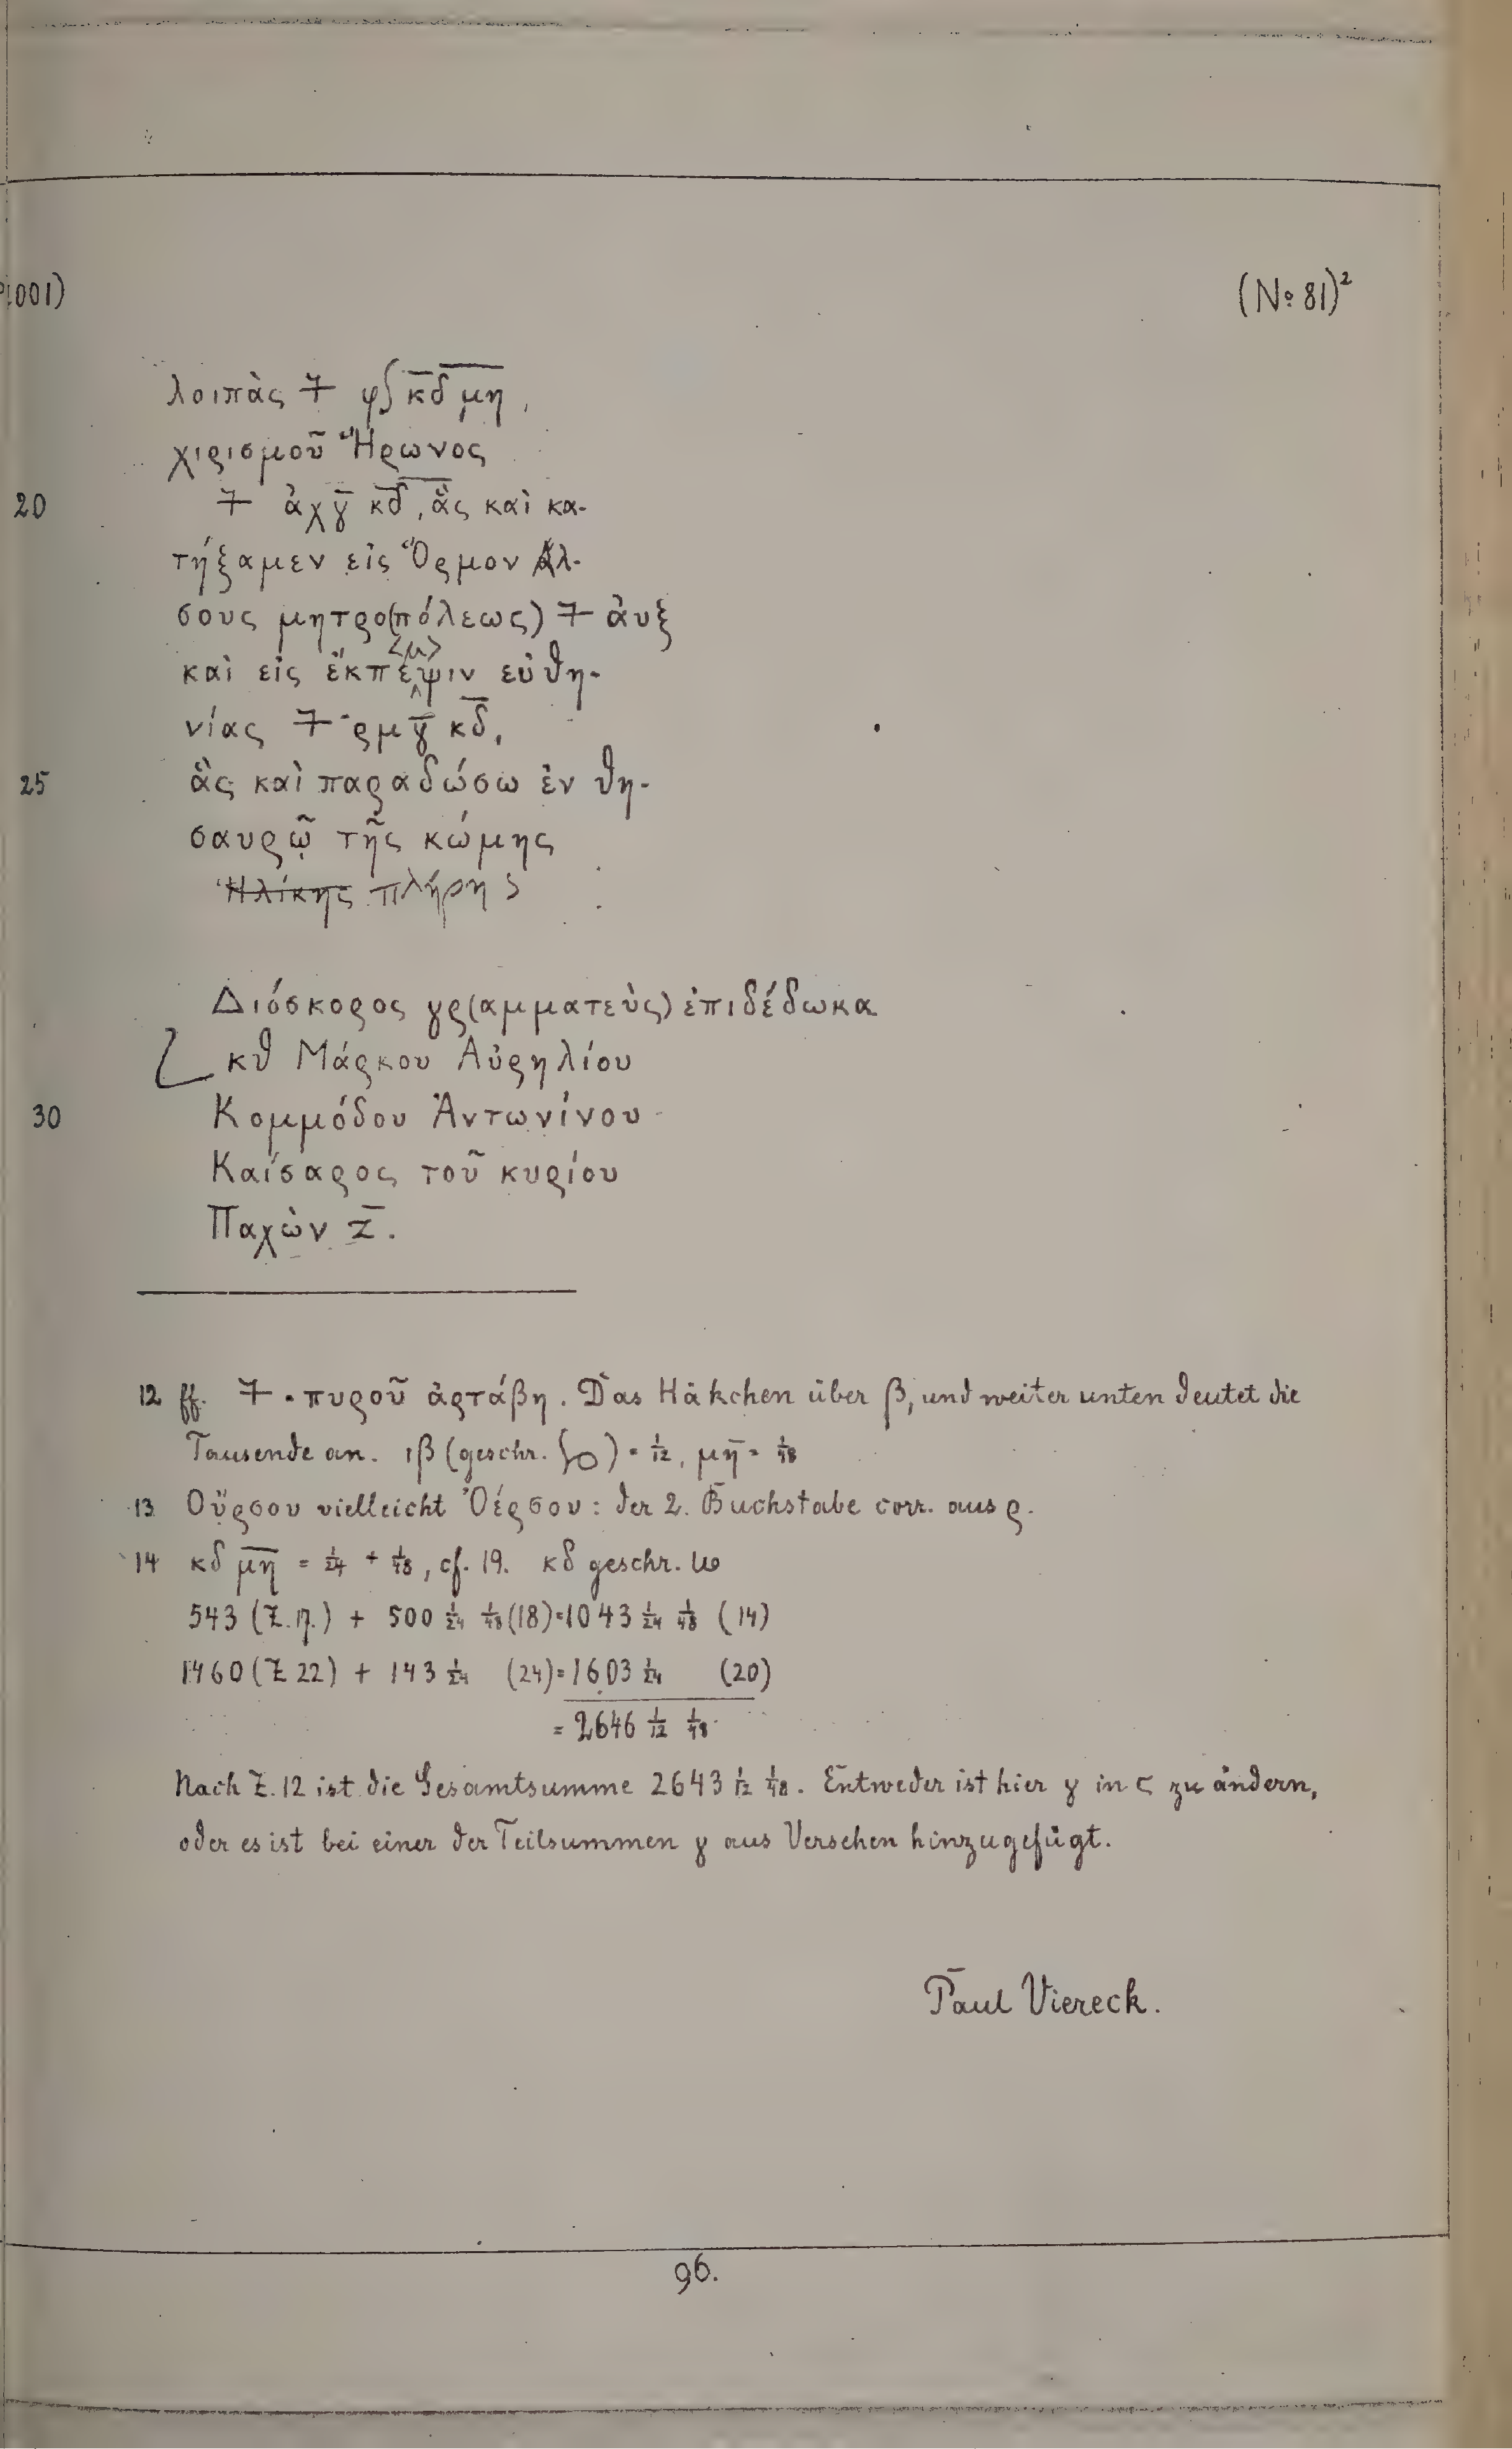 001)
(No 81)²
λοιπὰς 𐅵 φ∫ κ̅δ̅ μ̅η̅,
χιρισμοῦ Ἥρωνος
20 ἀχγ̅ κδ̅, ἃς καὶ κα-
τήξαμεν εἰς Ὅρμον Ἀλ-
σους μητρο(πόλεως) ἀυξ
καὶ εἰς ἔκπε<μ>ψιν εὐθη-
νίας ρμγ̅ κδ̅,
25 ἃς καὶ παραδώσω ἐν θη-
σαυρῷ τῆς κώμης
Ἡλίκης πλήρης
Διόσκορος γρ(αμματεὺς) ἐπιδέδωκα
κθ Μάρκου Αὐρηλίου
30 Κομμόδου Ἀντωνίνου
Καίσαρος τοῦ κυρίου
Παχὼν ζ̅.
12 ff. πυροῦ ἀρτάβη. Das Häkchen über β, und weiter unten deutet die
Tausende an. ιβ (geschr. ) = 1/12, μη̅ = 1/48
13 Οὔρσου vielleicht Ὀέρσου: der 2. Buchstabe corr. aus ρ.
14 κδ μ̅η̅ = 1/24 + 1/48, cf. 19. κδ geschr.
543 (Z. 17.) + 500 1/24 1/48 (18) = 1043 1/24 1/48 (14)
1460 (Z 22) + 143 1/24 (24) = 1603 1/24 (20)
= 2646 1/12 1/48
Nach Z. 12 ist die Gesamtsumme 2643 1/12 1/48. Entweder ist hier γ in ς zu ändern,
oder es ist bei einer der Teilsummen γ aus Versehen hinzugefügt.
Paul Viereck.
96.